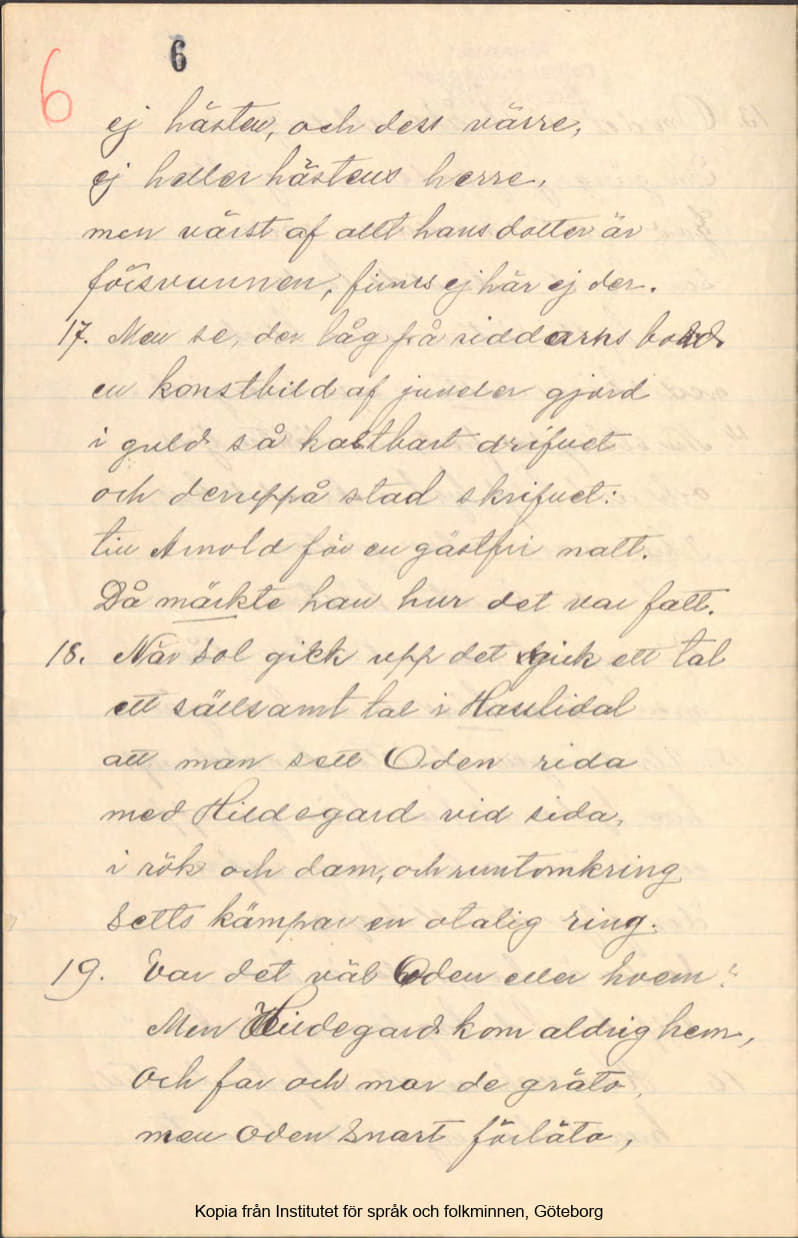 6
6
ej hästen, och dess värre,
ej heller hästens herre,
men värst af allt hans dotter är
försvunnen, finns ej här ej der.
17. Men se, der låg på riddarns bord
en konstbild af juveler gjord
i guld så kostbart drifvet
och deruppå stod skrifvet:
till Arnold för en gästfri natt.
Då märkte han hur det var fatt.
18. När sol gikk upp det gick ett tal
ett sällsamt tal i Haslidal
att man sett Oden rida
med Hildegard vid sida,
i rök och dam, och runtomkring
setts kämpar en otalig ring.
19. Var det väl Oden eller hvem?
Men Hildegard kom aldrig hem,
Och far och mor de gräto,
men Oden snart förläto,
Kopia från Institutet för språk och folkminnen, Göteborg